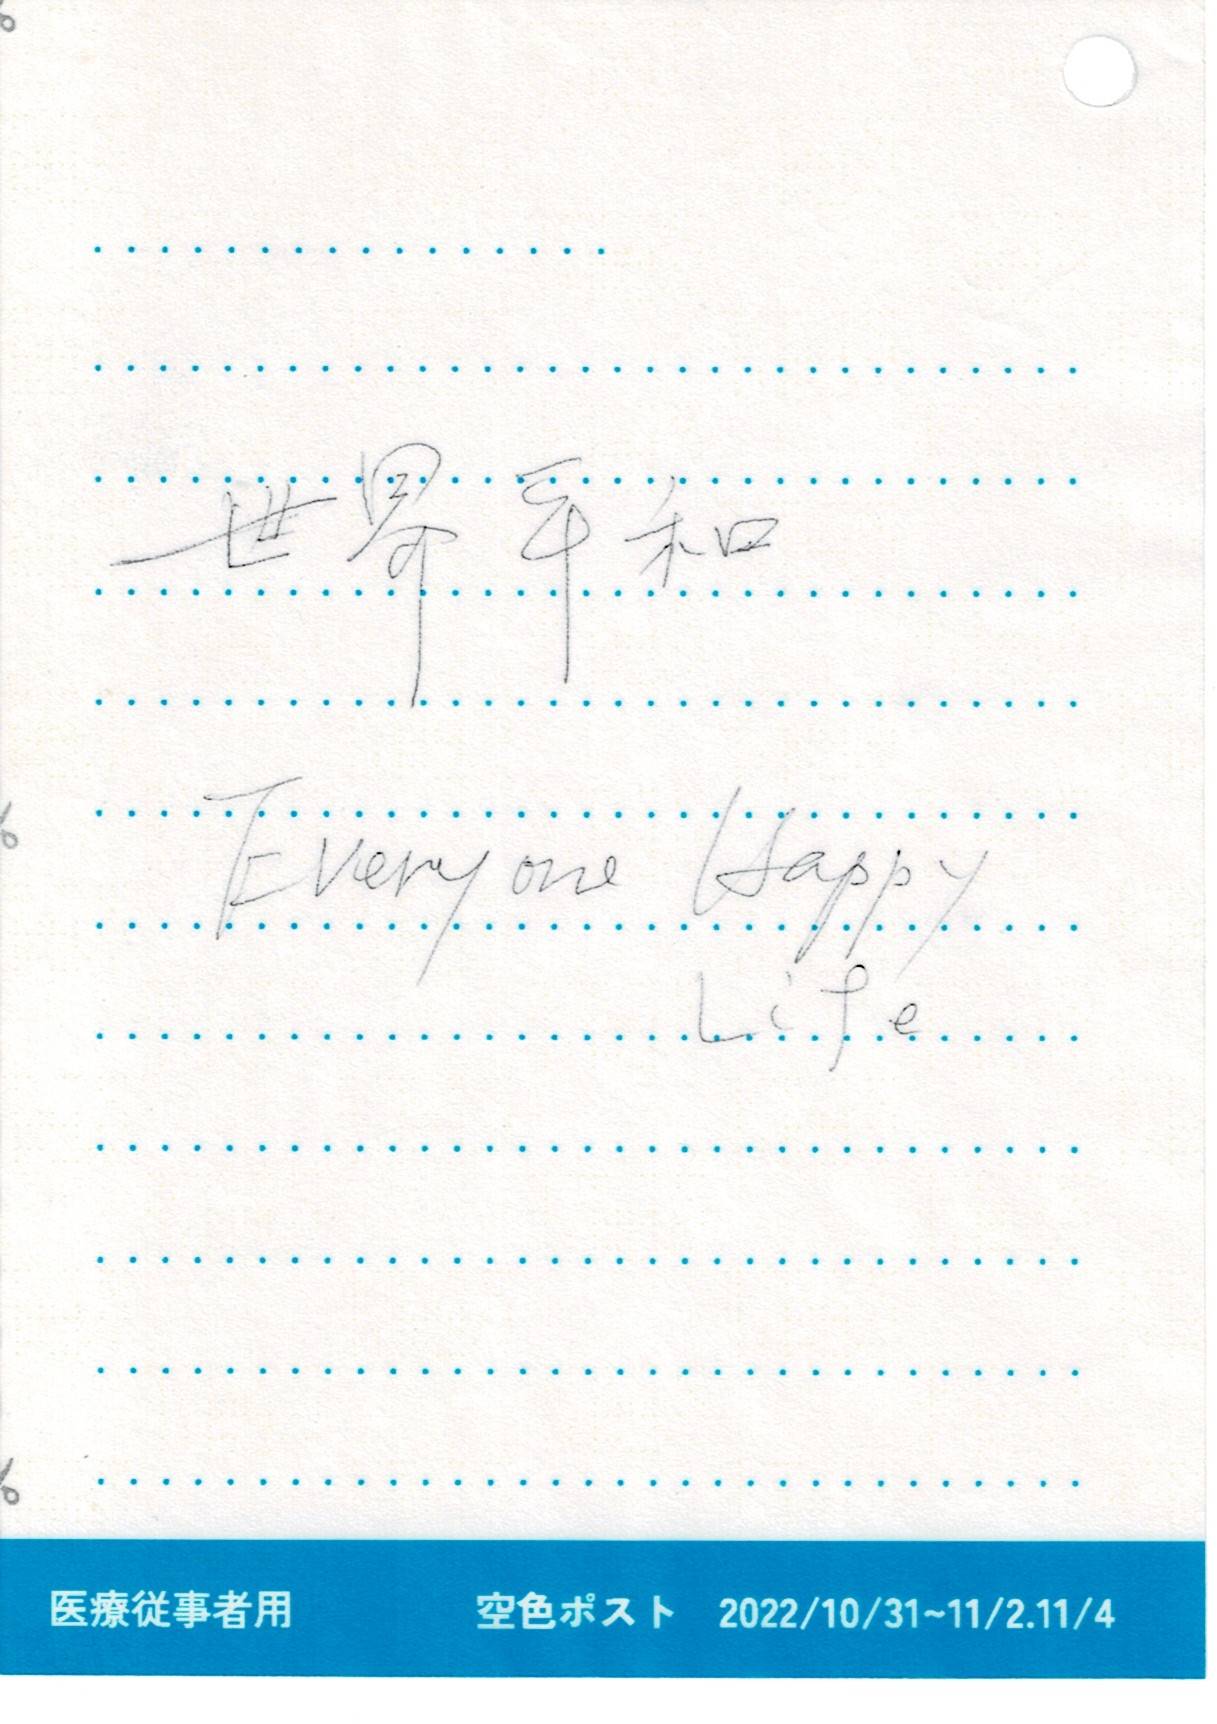 世界平和
Everyone Happy
Life
医療従事者用 空色ポスト 2022/10/31~11/2.11/4